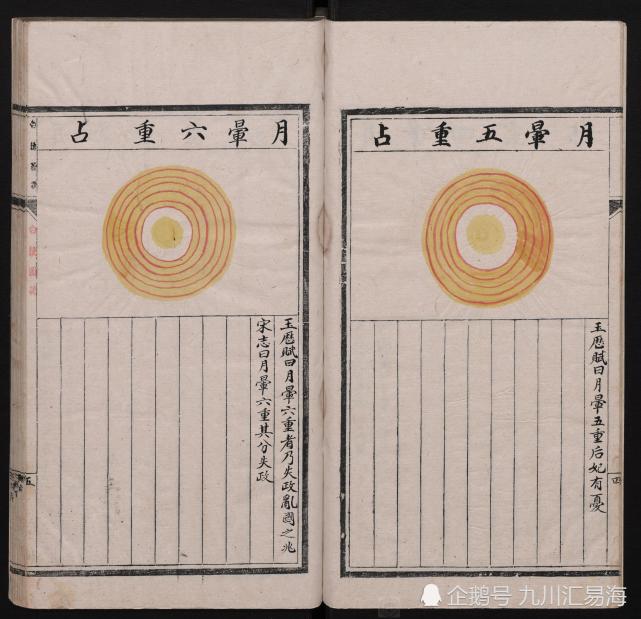 月暈五重占
玉曆賦曰月暈五重后妃有憂
四
月暈六重占
玉曆賦曰月暈六重者乃失政亂國之兆
宋志曰月暈六重其分失政
五
企鹅号 九川汇易海